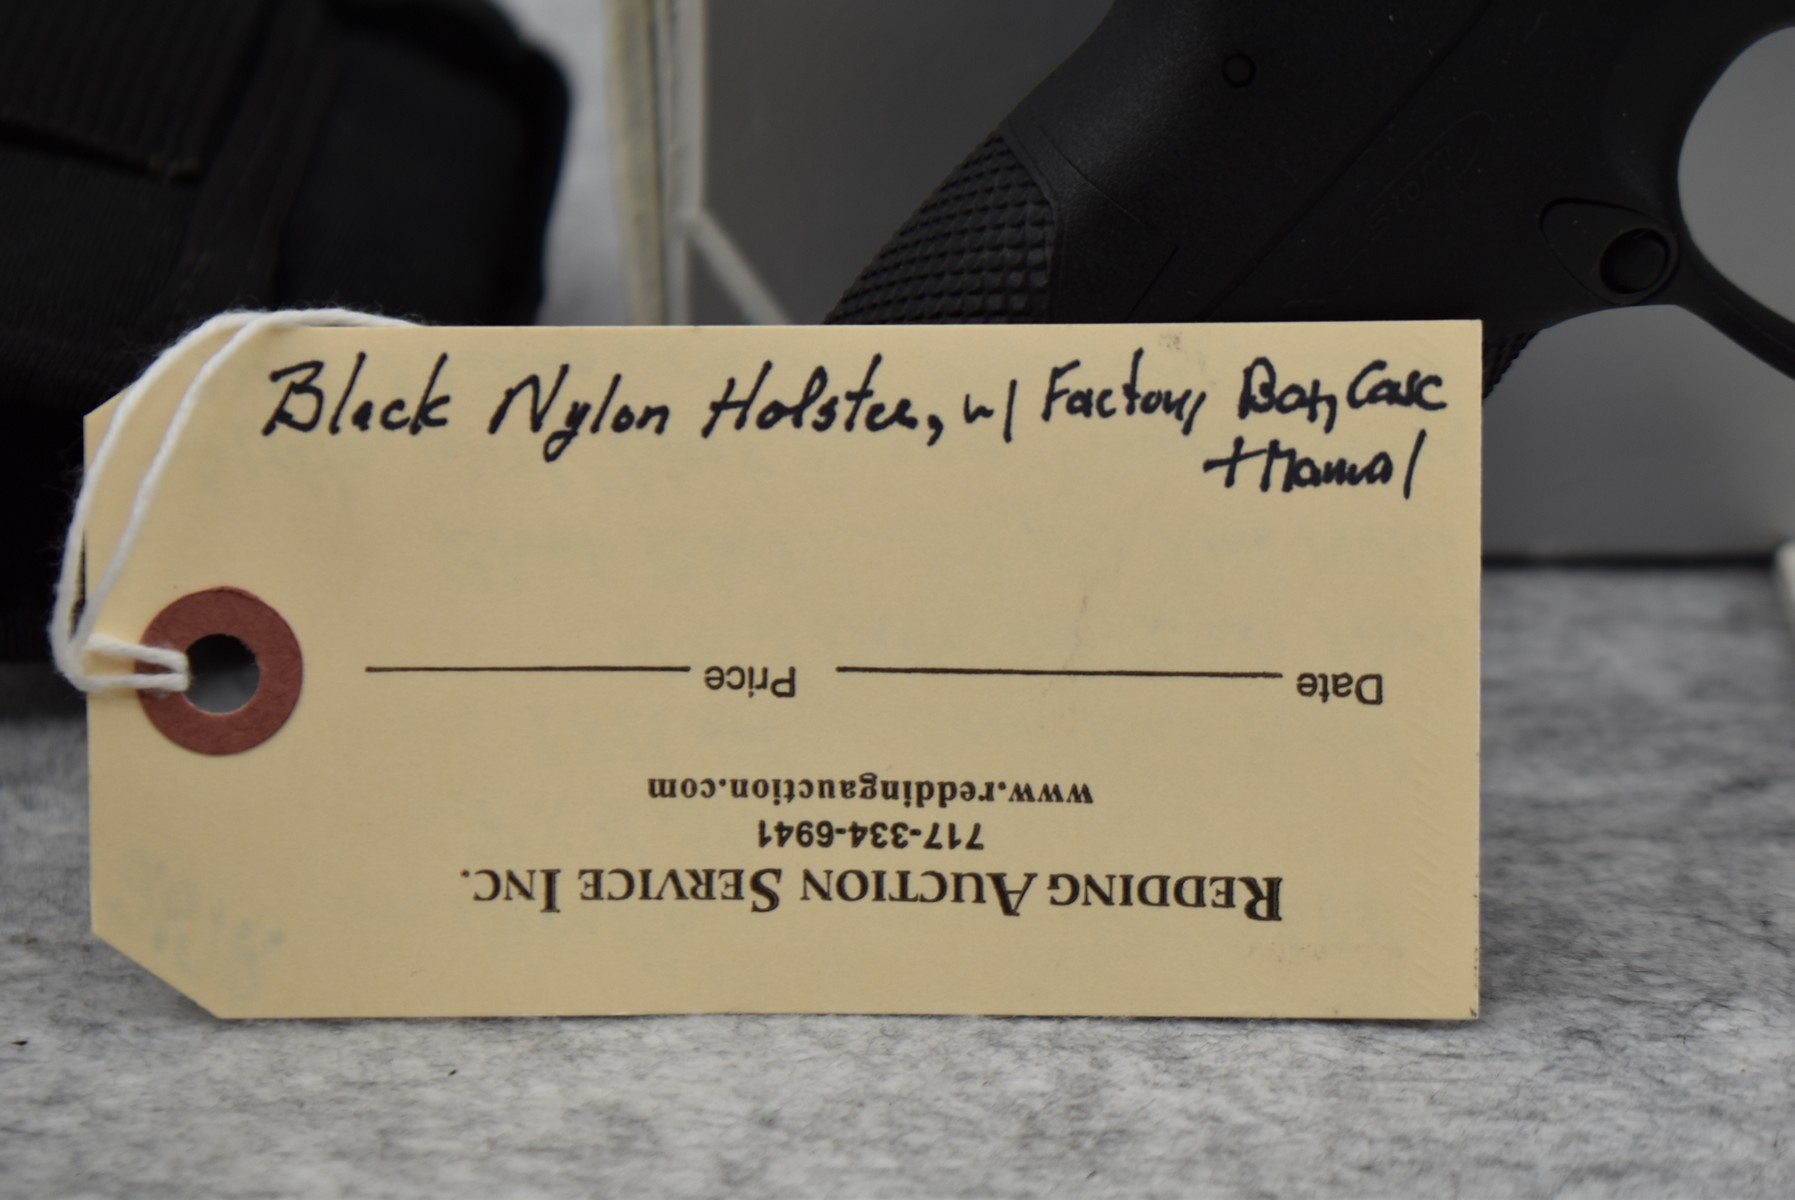 Black Nylon Holster, w/ Factory Box, Case
+ Manual
Date Price
www.reddingauction.com
717-334-6941
REDDING AUCTION SERVICE INC.
Storm